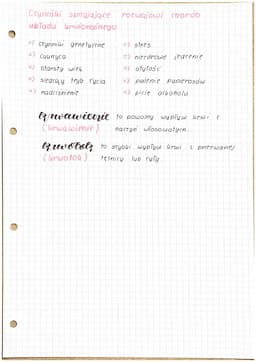 Czynniki sprzyjające rozwojowi chorób
układu krwionośnego
-> czynniki genetyczne -> stres
-> cukrzyca -> niezdrowe jedzenie
-> starszy wiek -> otyłość
-> siedzący tryb życia -> palenie papierosów
-> nadciśnienie -> picie alkoholu
to powolny wypływ krwi z
(krwawienie) naczyń włosowatych.
to szybki wypływ krwi z przerwanej
(krwotok) tętnicy lub żyły.